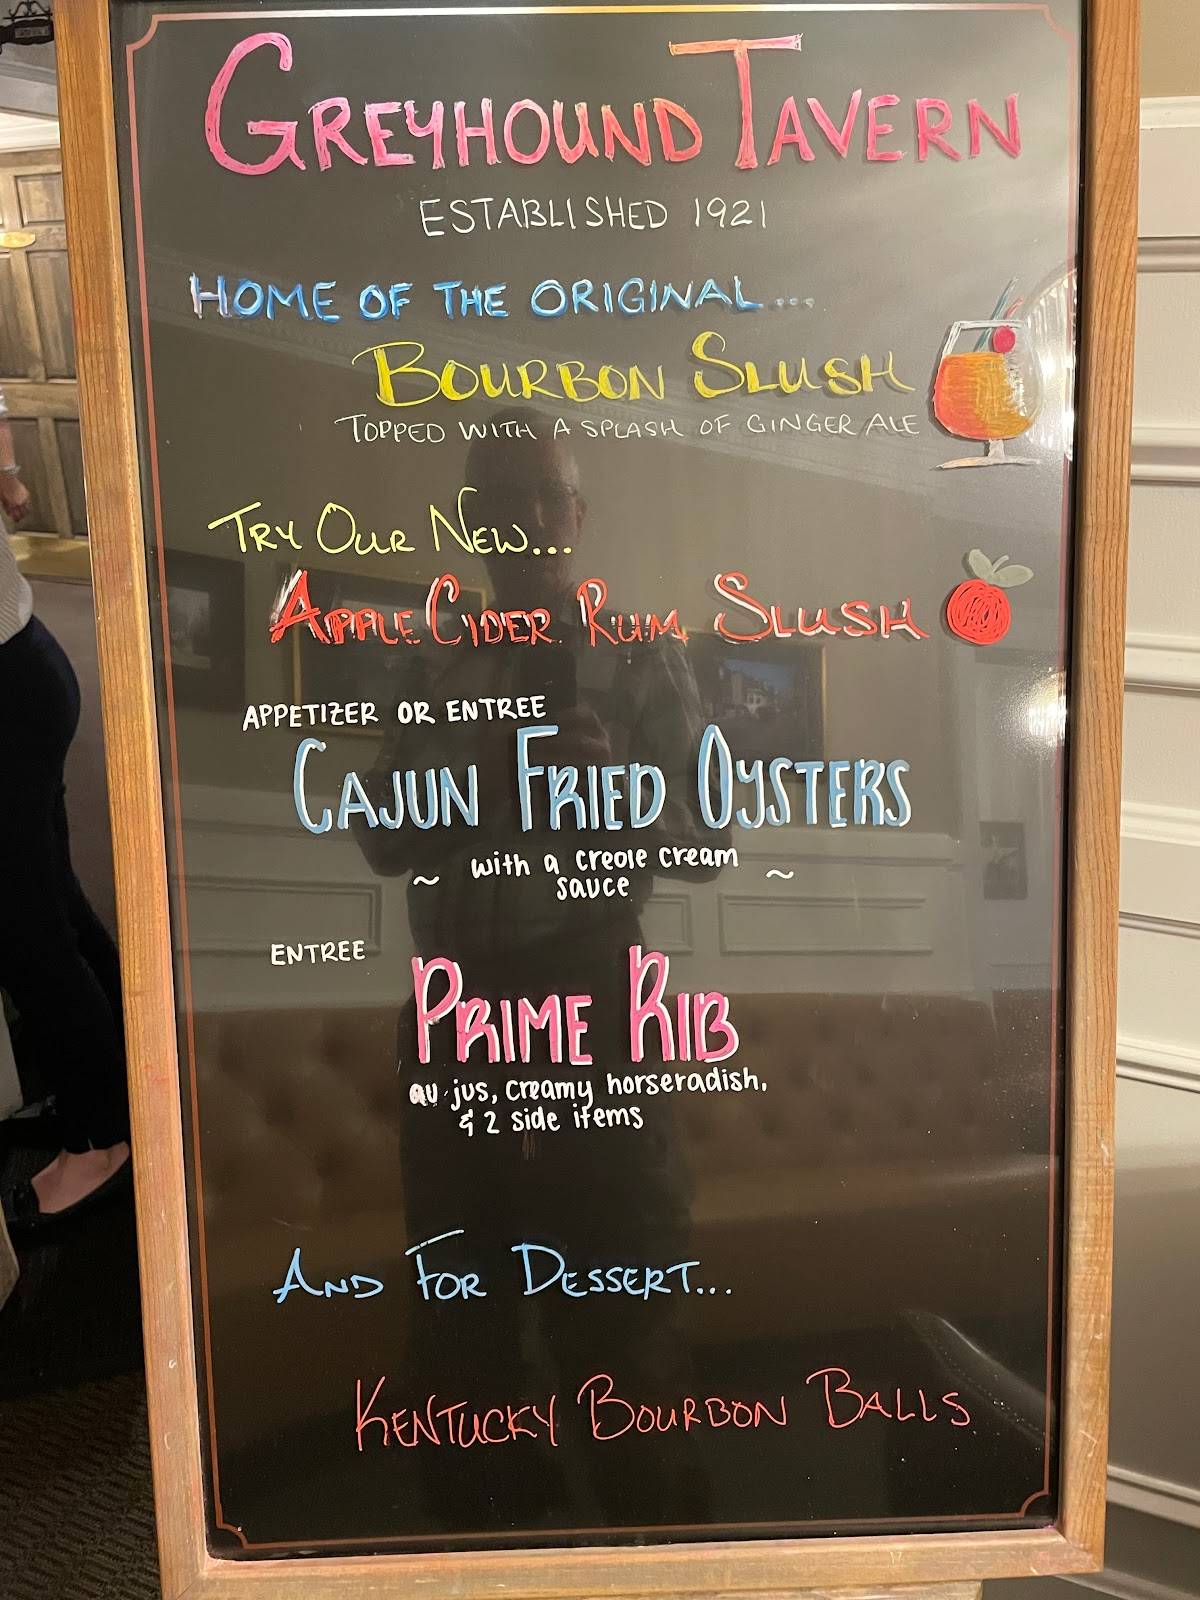 GREYHOUND TAVERN
ESTABLISHED 1921
HOME OF THE ORIGINAL...
BOURBON SLUSH
TOPPED WITH A SPLASH OF GINGER ALE
TRY OUR NEW...
APPLE CIDER RUM SLUSH
APPETIZER OR ENTREE
CAJUN FRIED OYSTERS
~ with a creole cream ~
sauce
ENTREE
PRIME RIB
au jus, creamy horseradish,
& 2 side items
AND FOR DESSERT...
KENTUCKY BOURBON BALLS